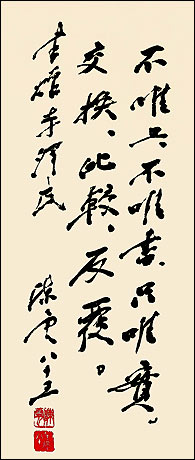 不唯上、不唯書、只唯實。
交換、比較、反覆。
書贈李澤民
陳雲八十五